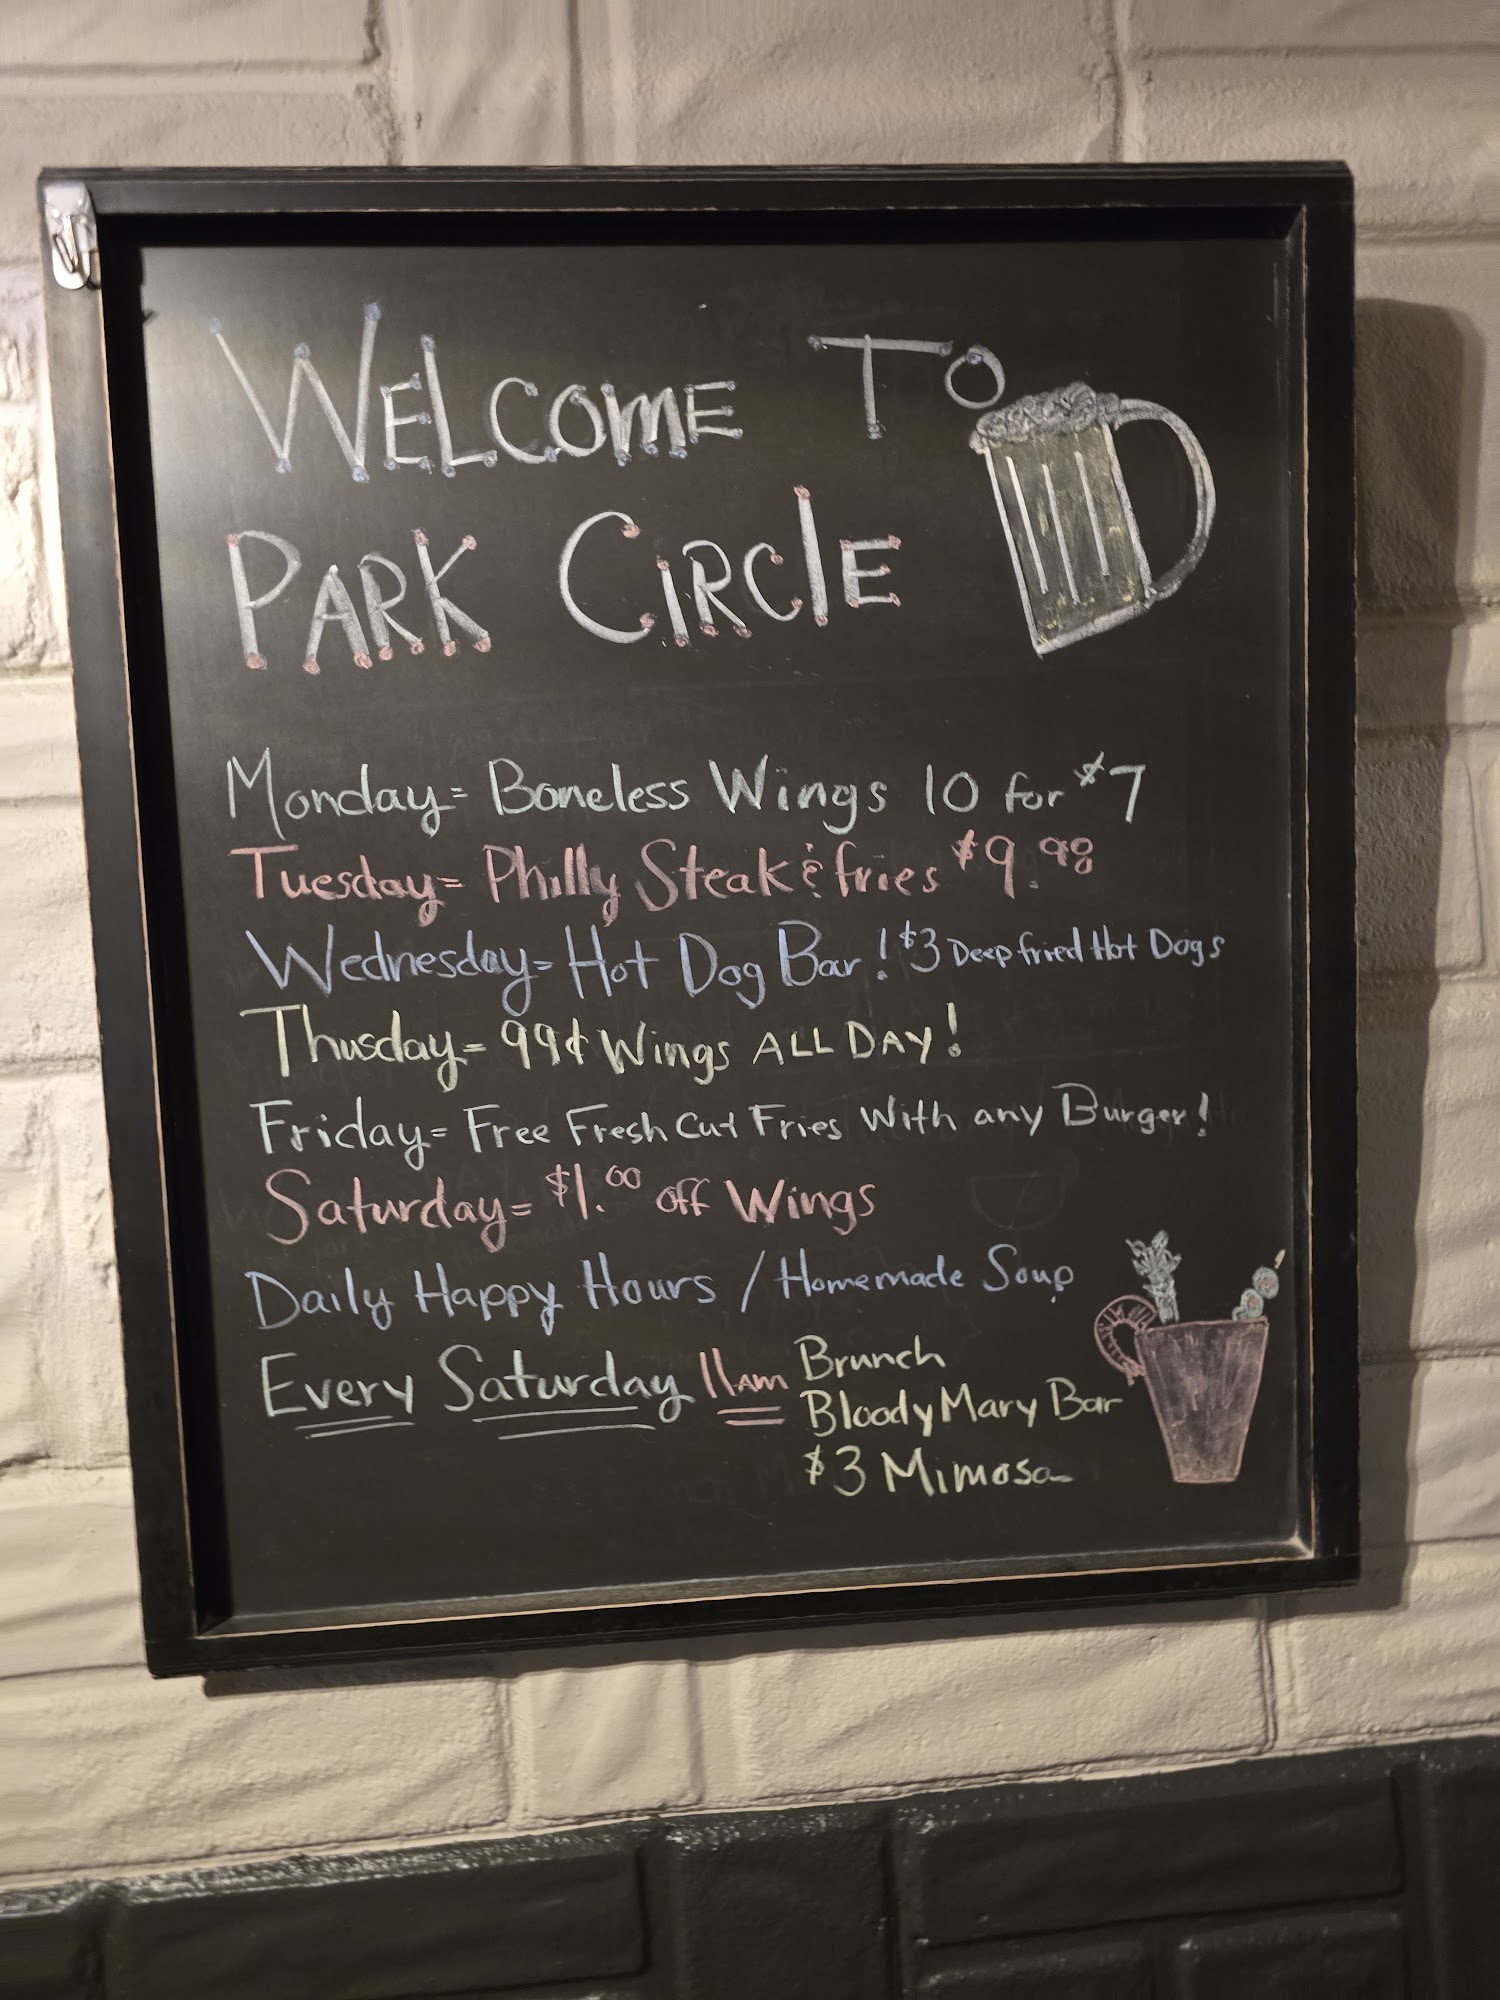 WELCOME TO
PARK CIRCLE
Monday= Boneless Wings 10 for $7
Tuesday= Philly Steak & fries $9.98
Wednesday= Hot Dog Bar! $3 Deep fried Hot Dogs
Thusday= 99¢ Wings ALL DAY!
Friday= Free Fresh Cut Fries With any Burger!
Saturday= $1.00 off Wings
Daily Happy Hours / Homemade Soup
Every Saturday 11am Brunch
Bloody Mary Bar
$3 Mimosa